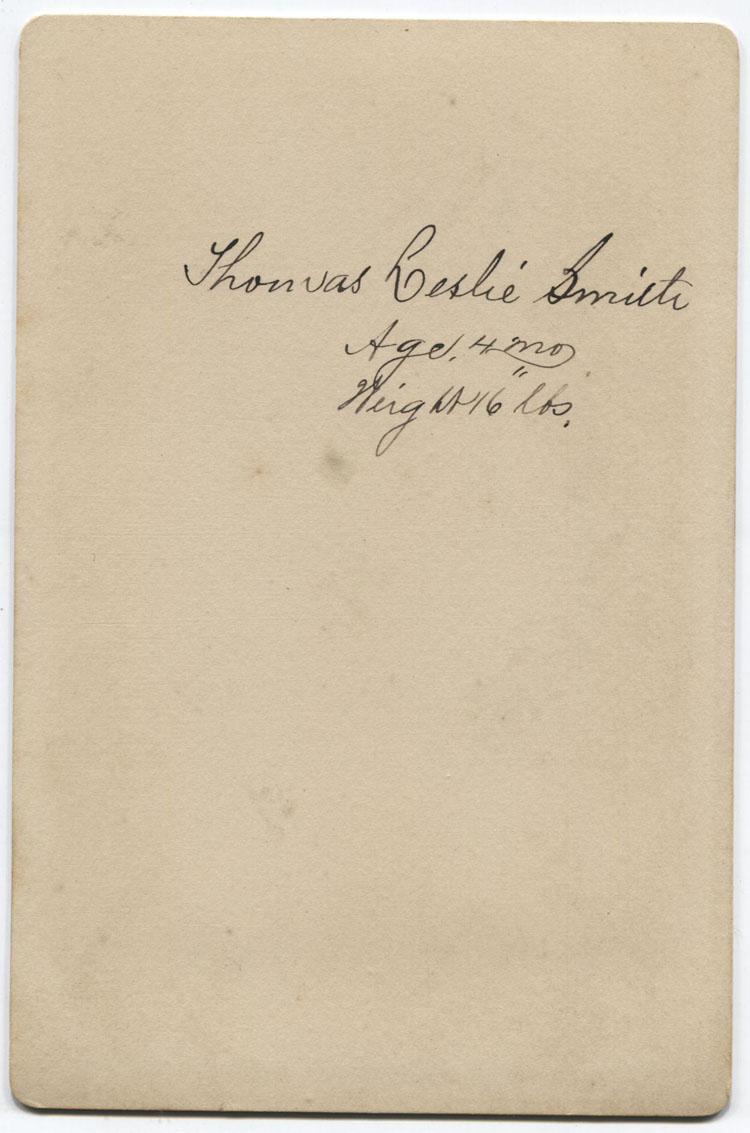 Thomas Leslie Smith
Age. 4 mo
Weight 16 " lbs.